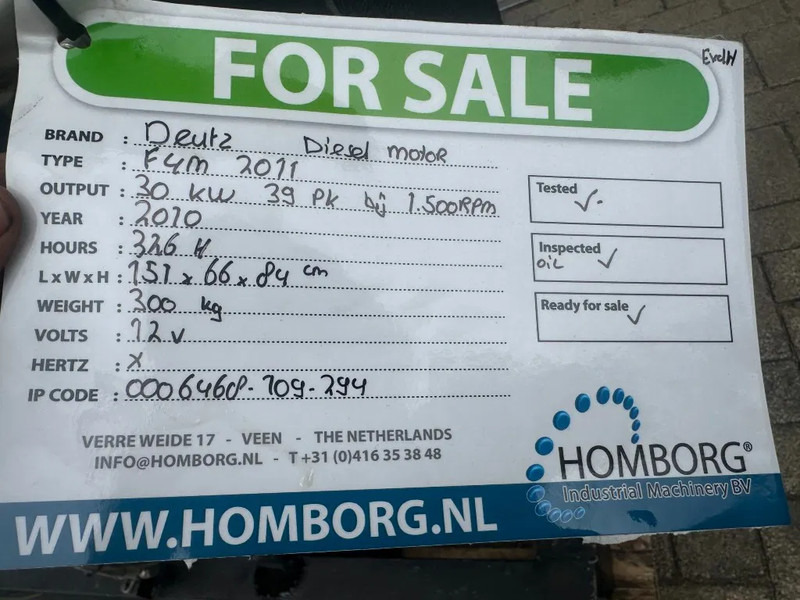 FOR SALE
EvdH
BRAND : Deutz Diesel motor
TYPE : F4M 2011
OUTPUT : 30 kW 39 Pk bij 1.500RPM
YEAR : 2010
HOURS : 326 H
LxWxH : 151 x 66 x 84 cm
WEIGHT : 300 kg
VOLTS : 12 v
HERTZ : x
IP CODE : 0006468-109-294
Tested ✓
Inspected ✓
OIL
Ready for sale ✓
VERRE WEIDE 17 - VEEN - THE NETHERLANDS
INFO@HOMBORG.NL - T +31 (0)416 35 38 48
HOMBORG®
Industrial Machinery BV
WWW.HOMBORG.NL